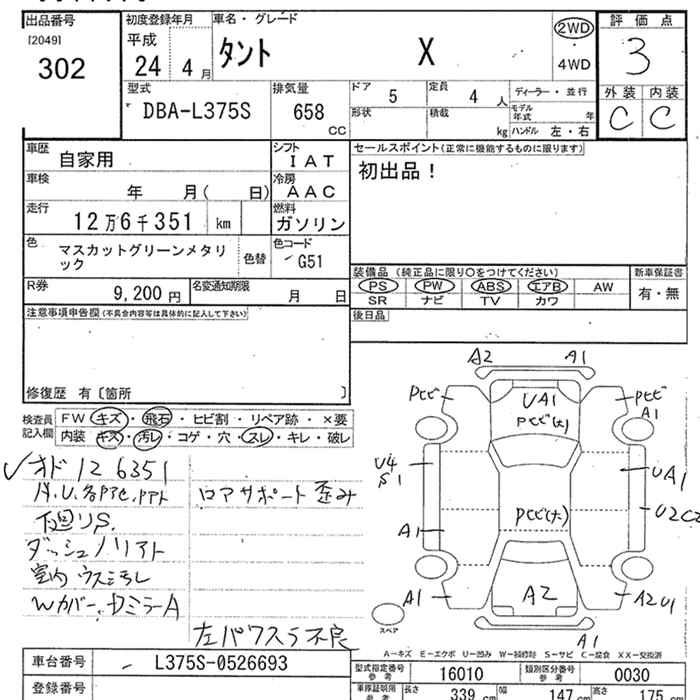 出品番号
[2049]
302
初度登録年月
平成
24 4 月
車名・グレード
タント X
2WD
4WD
評価点
3
外装 内装
C C
型式
DBA-L375S
排気量
658
CC
ドア
5
定員
4 人
ディーラー・並行
形状
積載
kg
モデル年式 年
ハンドル 左・右
車歴
自家用
シフト
IAT
セールスポイント(正常に機能するものに限ります)
初出品!
車検
年 月( 日)
冷房
AAC
走行
12万6千351 km
燃料
ガソリン
色
マスカットグリーンメタリック
色替
色コード
G51
R券
9,200 円
名変通知期限
月 日
装備品 (純正品に限り○をつけてください)
新車保証書
PS PW ABS エアB AW
有・無
SR ナビ TV カワ
後日品
注意事項申告欄(不具合内容等は具体的に記入して下さい)
修復歴 有〔箇所 〕
検査員記入欄
FW キズ・飛石・ヒビ割・リペア跡・×要
内装 キズ・汚レ・コゲ・穴・スレ・キレ・破レ
オド126351
ロアサポート歪み
下廻りS.
ダッシュノリアト
室内ウスヨゴレ
WカバーDミラーA
左パワスラ不良
A2 A1
UA1
PCビ(大)
PCビ
PCビ
A1
U4
S1
UA1
U2C2
A1
PCビ(大)
A1
A2
A2U1
A1
スペア
A-キズ E-エクボ U-凹み W-補修跡 S-サビ C-腐食 XX-交換済
車台番号
L375S-0526693
登録番号
型式指定番号 参考
16010
類別区分番号 参考
0030
車庫証明用 参考
長さ 339 cm 幅 147 cm 高さ 175 cm